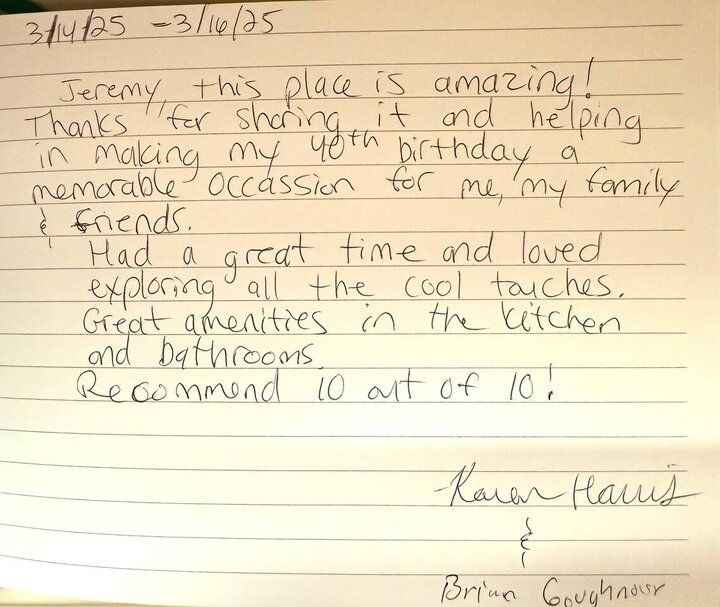 3/14/25 - 3/16/25
Jeremy, this place is amazing!
Thanks for sharing it and helping
in making my 40th birthday a
memorable occassion for me, my family
& friends.
Had a great time and loved
exploring all the cool touches.
Great amenities in the kitchen
and bathrooms.
Recommend 10 out of 10!
-Karen Harris
&
Brian Goughnour